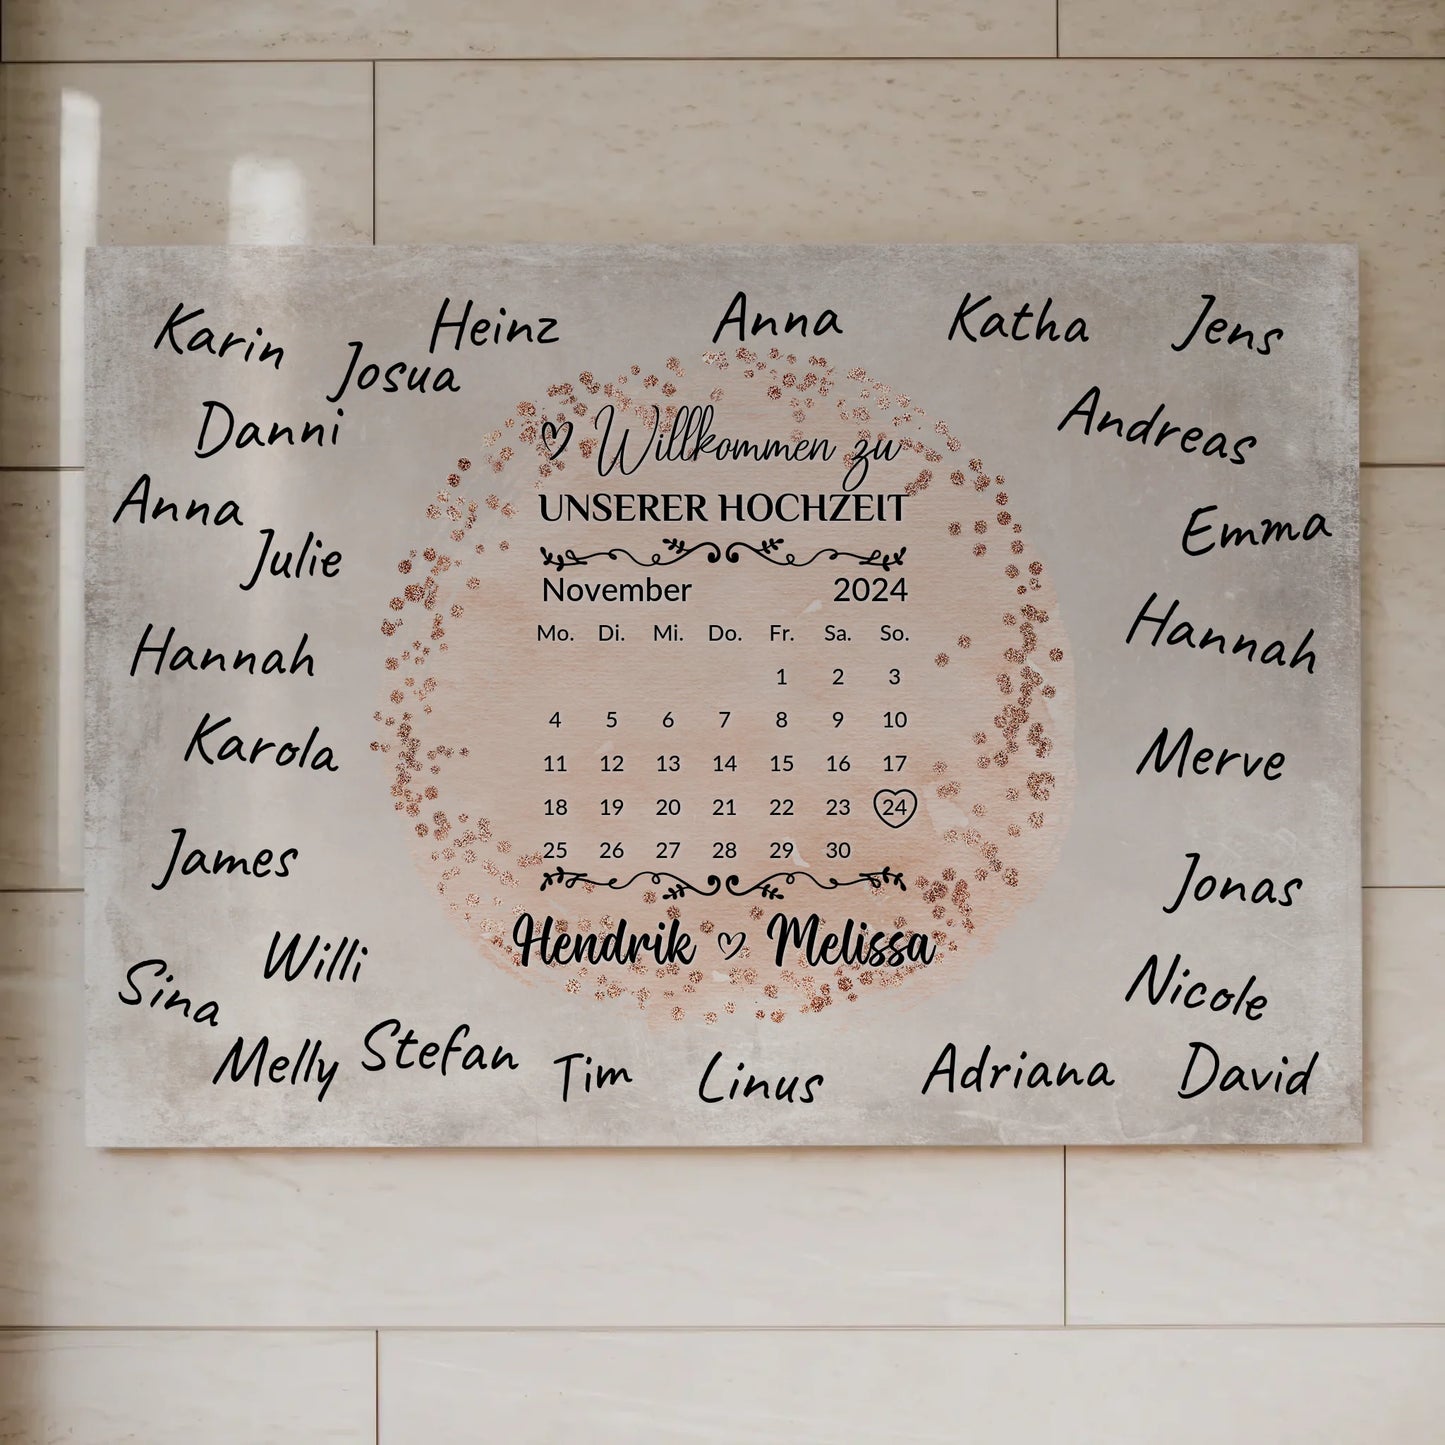 Karin
Heinz
Anna
Katha
Jens
Josua
Danni
Andreas
Anna
Emma
Julie
Hannah
Hannah
Karola
Merve
James
Jonas
Willi
Sina
Nicole
Melly
Stefan
Tim
Linus
Adriana
David
Willkommen zu
UNSERER HOCHZEIT
November 2024
Mo. Di. Mi. Do. Fr. Sa. So.
1 2 3
4 5 6 7 8 9 10
11 12 13 14 15 16 17
18 19 20 21 22 23 24
25 26 27 28 29 30
Hendrik Melissa